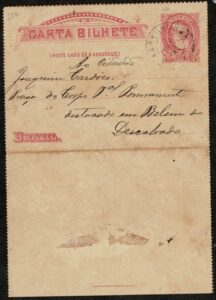 CARTA BILHETE
(NESTE LADO SÓ O ENDEREÇO)
Ao Cidadão
Joaquim Cardozo
Praça do Corpo Pol Permanente
destacado em Belem do
Descalvado
BRAZIL